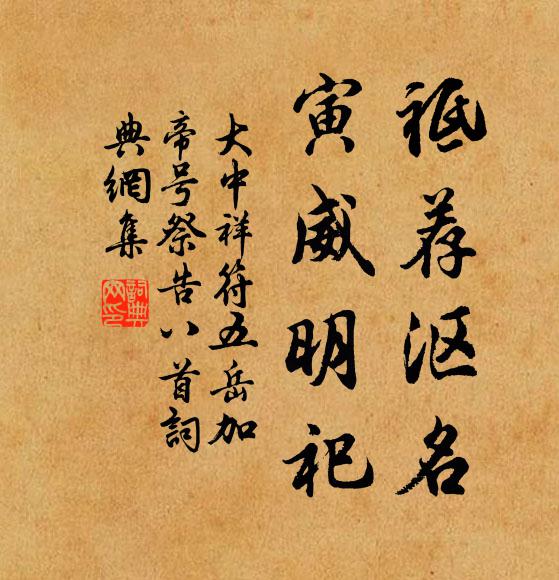 祗荐沤名
寅威明祀
大中祥符五岳加
帝号祭告八首词
典網集
詞典網印